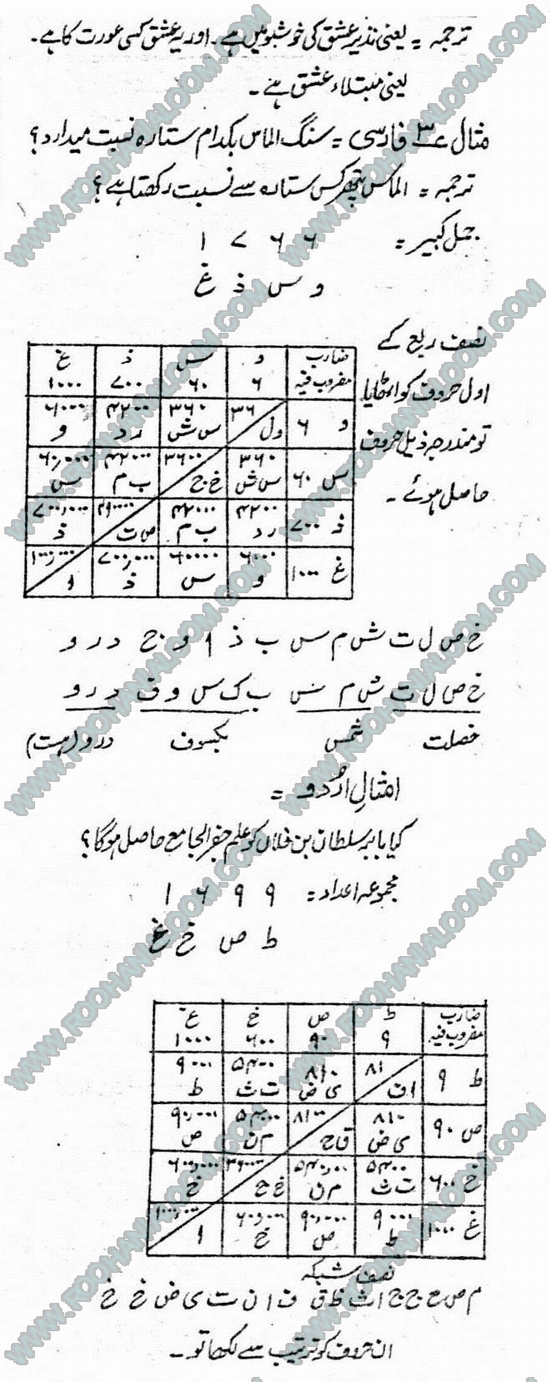 ترجمہ = یعنی نذیر عشق کی خوشبو میں ہے۔ اور یہ عشق کسی عورت کا ہے۔
یعنی مبتلاء عشق ہے۔
مثال ۳ فارسی = سنگ الماس بکدام ستارہ نسبت میدارد؟
ترجمہ = الماس پتھر کس ستارہ سے نسبت رکھتا ہے؟
جمل کبیر = ۱ ۷ ۶ ۶
و س ذ غ
نصف ربع کے
اول حروف کو اٹھایا
تو مندرجہ ذیل حروف
حاصل ہوئے۔
ضارب مفروب فیہ و ۶ س ۶۰ ذ ۷۰۰ غ ۱۰۰۰
و ۶ ۳۶ ول ۳۶۰ س ش ۴۲۰۰ رد ۶۰۰۰ و
س ۶۰ ۳۶۰ س ش ۳۶۰۰ خ ج ۴۲۰۰۰ ب م ۶۰,۰۰۰ س
ذ ۷۰۰ ۴۲۰۰ رد ۴۲۰۰۰ ب م ص ت ۷۰۰,۰۰۰ ذ
غ ۱۰۰۰ ۶۰۰۰ و ۶۰۰۰۰ س ۷۰۰,۰۰۰ ذ ا
خ ص ل ت ش م س ب ذ ا و ج د ر و
خ ص ل ت ش م س ب ک س و ف د ر و
خصلت شمس بکسوف درو (ہست)
امثال اردو =
کیا بابر سلطان بن فلاں کو علم جفر الجامع حاصل ہوگا؟
مجموعہ اعداد = ۱ ۶ ۹ ۹
ط ص خ غ
ضارب مفروب فیہ ط ۹ ص ۹۰ خ ۶۰۰ غ ۱۰۰۰
ط ۹ ۸۱ اف ۸۱۰ ی ض ۵۴۰۰ ت ث ۹۰۰۰ ط
ص ۹۰ ۸۱۰ ی ض ۸۱۰۰ ق ح م ن ۹۰,۰۰۰ ص
خ ۶۰۰ ۵۴۰۰ ت ث م ن خ ج ۶۰۰,۰۰۰ خ
غ ۱۰۰۰ ۹۰۰۰ ط ۹۰,۰۰۰ ص خ ا
نصف شبکہ
ان حروف کو ترتیب سے لکھا تو۔
WWW.ROOHANIALOOM.COM